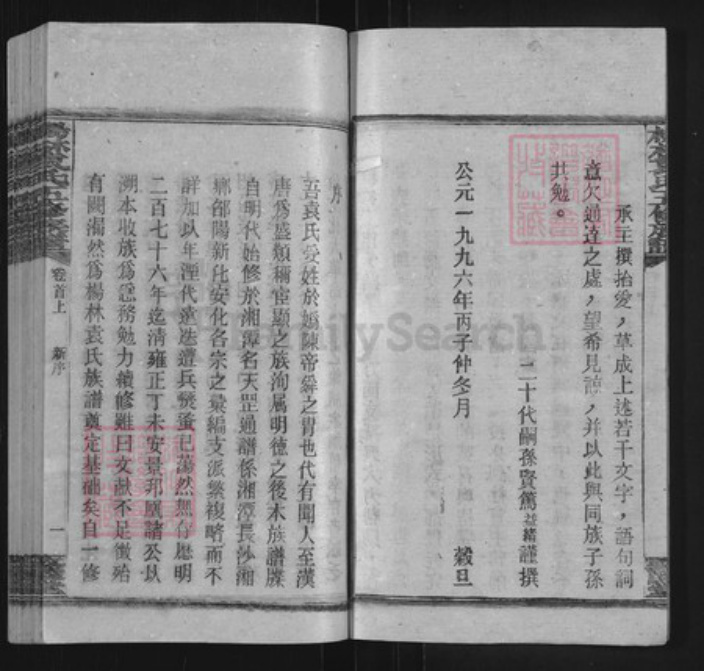 承主撰抬愛，草成上述若干文字，語句詞
意欠通達之處，望希見諒，并以此與同族子孫
共勉。
二十代嗣孫賢篤益緒謹撰
公元一九九六年丙子仲冬月 穀旦
序
吾袁氏受姓於媯陳帝舜之胄也代有聞人至漢
唐爲盛類稱宦顯之族洵属明德之後本族譜牒
自明代始修於湘潭名天罡通譜係湘潭長沙湘
鄉邵陽新化安化各宗之彙編支派繁複略而不
詳加以年湮代遠迭遭兵燹蚤已蕩然無存歷明
二百七十六年迄清雍正丁未安景邦鳳諸公以
溯本收族爲急務勉力續修雖曰文献不足徵殆
有闕漏然爲楊林袁氏族譜奠定基础矣自一修
卷首上 新序 一
FamilySearch